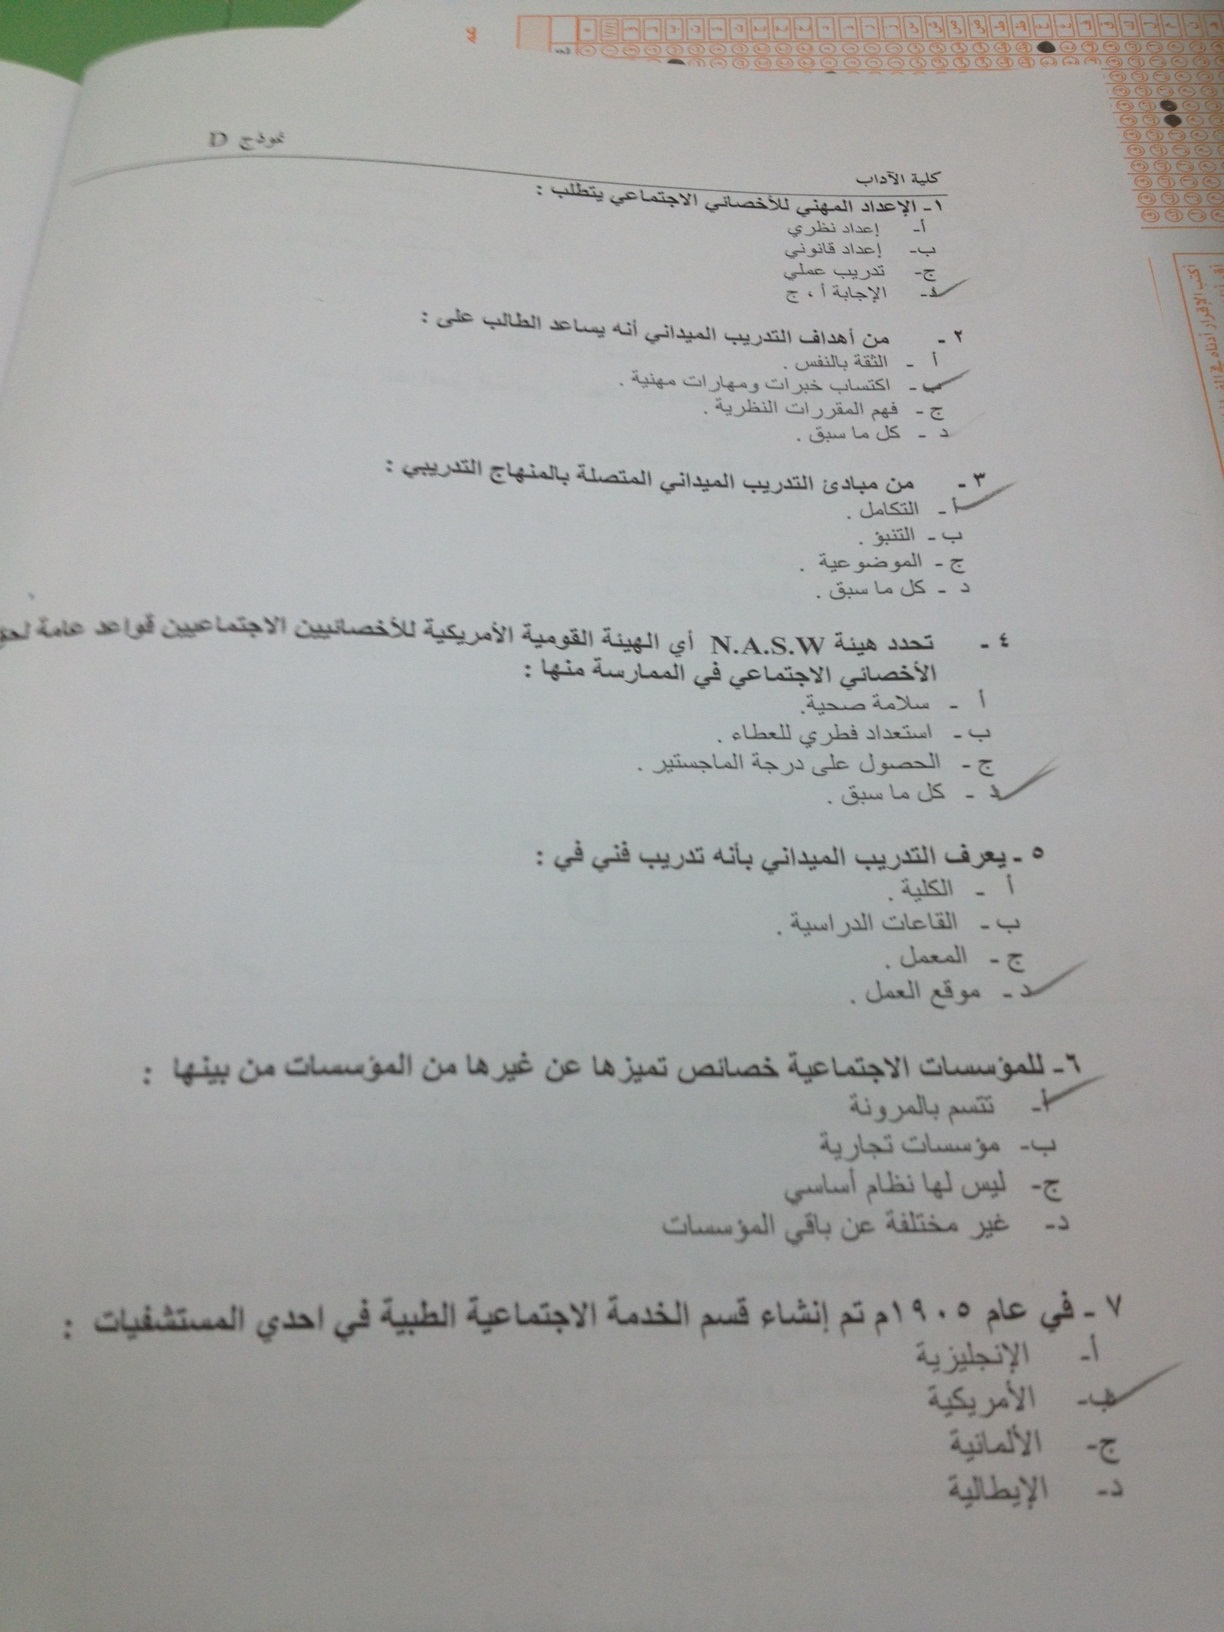 نموذج D
كلية الآداب
١- الإعداد المهني للأخصائي الاجتماعي يتطلب :
أ- إعداد نظري
ب- إعداد قانوني
ج- تدريب عملي
د- الإجابة أ ، ج
٢ - من أهداف التدريب الميداني أنه يساعد الطالب على :
أ - الثقة بالنفس .
ب - اكتساب خبرات ومهارات مهنية .
ج - فهم المقررات النظرية .
د - كل ما سبق .
٣ - من مبادئ التدريب الميداني المتصلة بالمنهاج التدريبي :
أ - التكامل .
ب - التنبؤ .
ج - الموضوعية .
د - كل ما سبق .
٤ - تحدد هيئة N.A.S.W أي الهيئة القومية الأمريكية للأخصائيين الاجتماعيين قواعد عامة
الأخصائي الاجتماعي في الممارسة منها :
أ - سلامة صحية.
ب - استعداد فطري للعطاء .
ج - الحصول على درجة الماجستير .
د - كل ما سبق .
٥ - يعرف التدريب الميداني بأنه تدريب فني في :
أ - الكلية .
ب - القاعات الدراسية .
ج - المعمل .
د - موقع العمل .
٦- للمؤسسات الاجتماعية خصائص تميزها عن غيرها من المؤسسات من بينها :
أ- تتسم بالمرونة
ب- مؤسسات تجارية
ج- ليس لها نظام أساسي
د- غير مختلفة عن باقي المؤسسات
٧ - في عام ١٩٠٥م تم إنشاء قسم الخدمة الاجتماعية الطبية في احدي المستشفيات :
أ- الإنجليزية
ب- الأمريكية
ج- الألمانية
د- الإيطالية